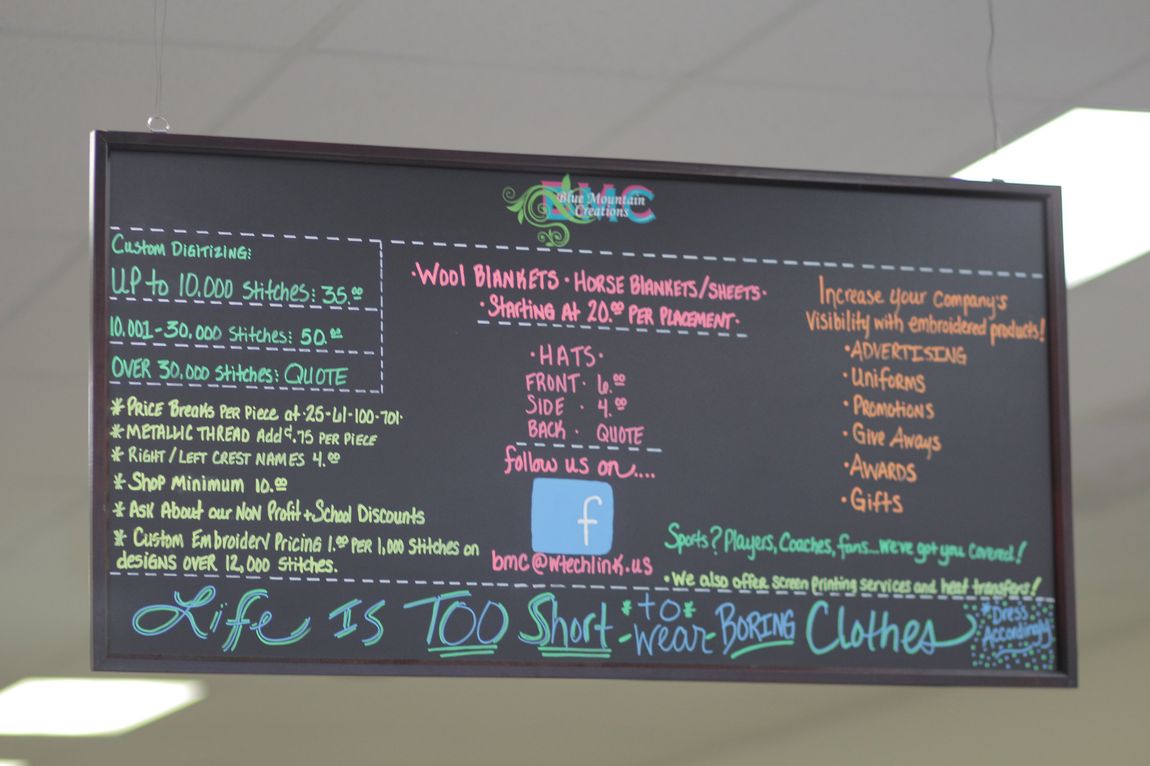 BMC
Blue Mountain
Creations
Custom Digitizing:
UP to 10,000 Stitches: 35.00
10,001-30,000 Stitches: 50.00
OVER 30,000 Stitches: QUOTE
* Price Breaks Per Piece at 25-61-100-701.
* METALLIC THREAD Add ¢.75 PER PIECE
* Right/Left CREST NAMES 4.00
* Shop Minimum 10.00
* ASK About our NON Profit + School Discounts
* Custom Embroidery Pricing 1.00 PER 1,000 Stitches on
designs OVER 12,000 Stitches.
·Wool BLANKETS · HORSE BLANKETS/SHEETS·
·Starting At 20.00 PER PLACEMENT·
·HATS·
FRONT· 6.00
SIDE · 4.00
BACK · QUOTE
follow us on....
f
bmc@wtechlink.us
Increase your Company's
Visibility with embroidered products!
·ADVERTISING
·Uniforms
·Promotions
·Give Aways
·AWARDS
·Gifts
Sports? Players, Coaches, fans...we've got you covered!
·We also offer screen printing services and heat transfers!
Life IS TOO Short *to* -wear- BORING Clothes
*Dress
Accordingly